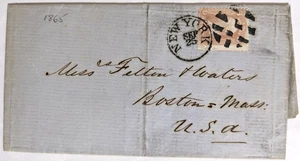 1865
NEW YORK
SEP
25
Mess^rs Felton & Waters
Boston = Mass:
U.S.a.